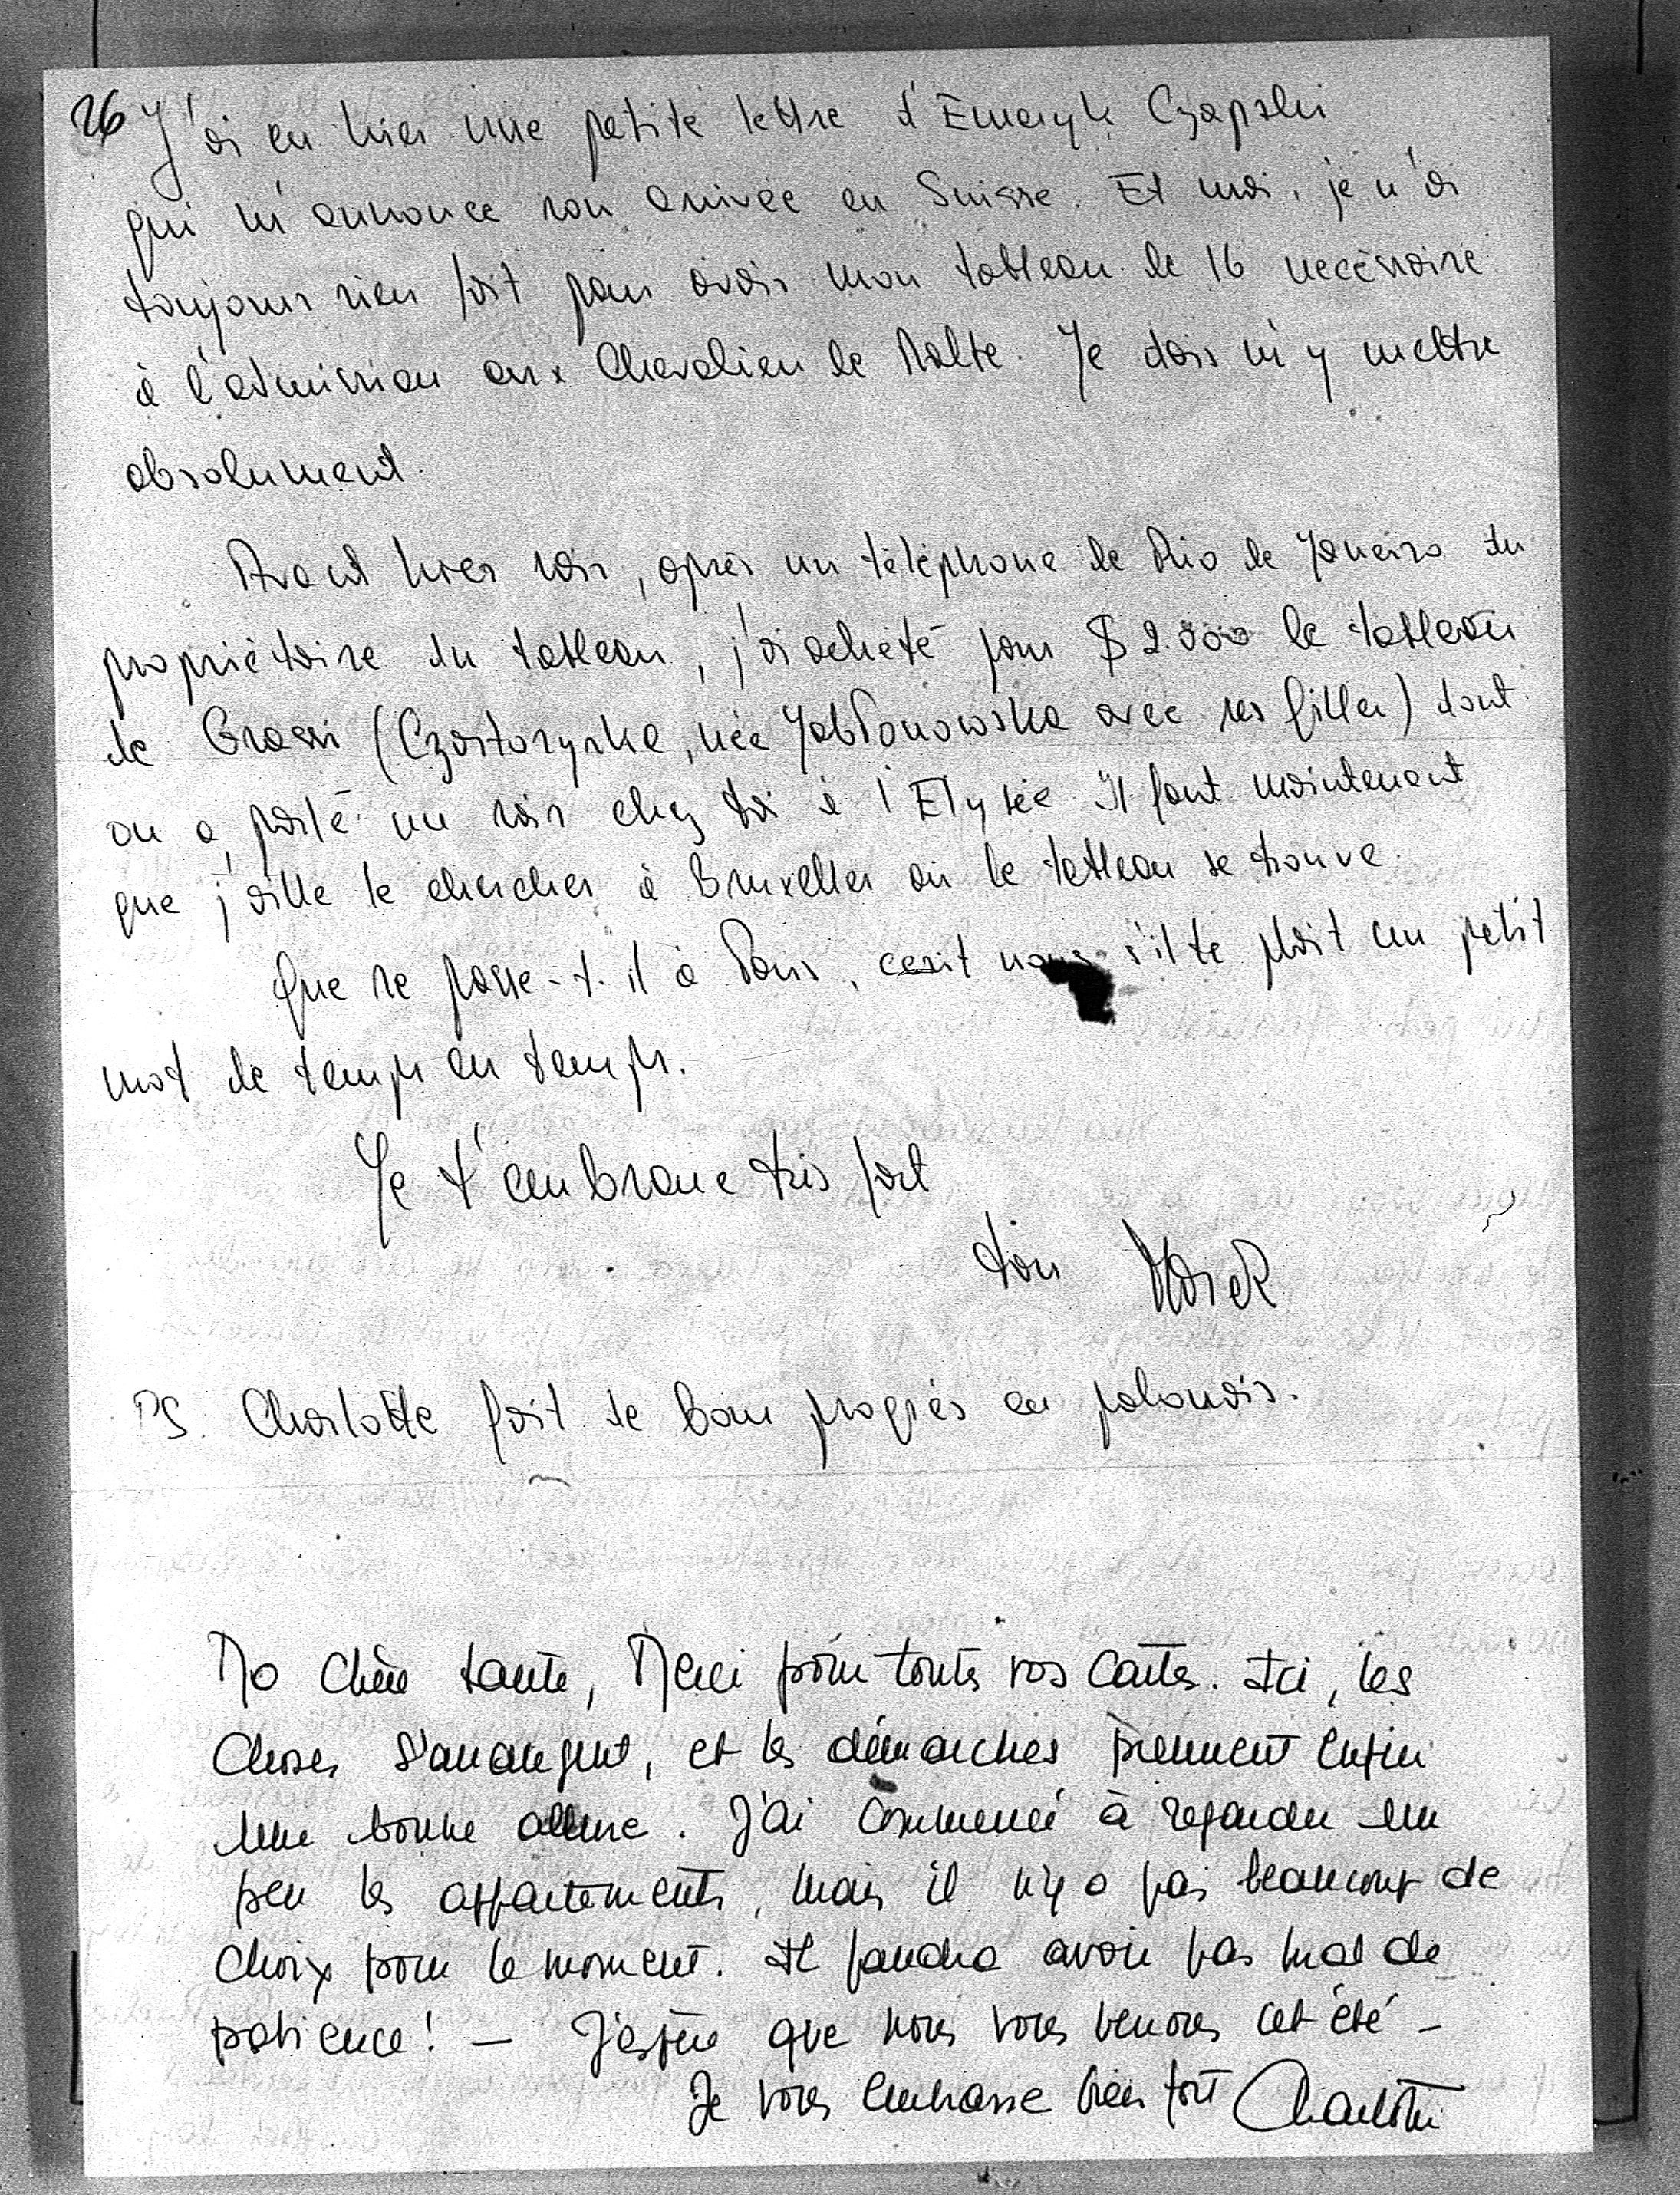 26 J'ai eu hier une petite lettre d'Emeryk Czapski
qui m'annonce son arrivée en Suisse. Et moi, je n'ai
toujours rien fait pour avoir mon tableau de 16 necéssaire
à l'admission aux Chevaliers de Malte. Je dois m'y mettre
absolument.
Avant hier soir, après un téléphone de Rio de Janeiro du
propriétaire du tableau, j'ai acheté pour $ 2.000 le tableau
de Grassi (Czartoryska, née Jabłonowska avec ses filles) dont
on a parlé un soir chez toi à l'Elysée Il faut maintenant
que j'aille le chercher à Bruxelles où le tableau se trouve.
Que se passe-t-il à Paris, ecrit nous s'il te plait un petit
mot de temps en temps.
Je t'embrasse très fort
ton Marek
PS. Charlotte fait de bons progrès en polonais.
Ma Chère tante, Merci pour toutes vos cartes. Ici, les
choses s'arrangent, et les démarches prennent enfin
une bonne allure. J'ai commencé à regarder un
peu les appartements, mais il n'y a pas beaucoup de
choix pour le moment. Il faudra avoir pas mal de
patience! — J'espère que nous vous verrons cet été —
Je vous embrasse bien fort Charlotte